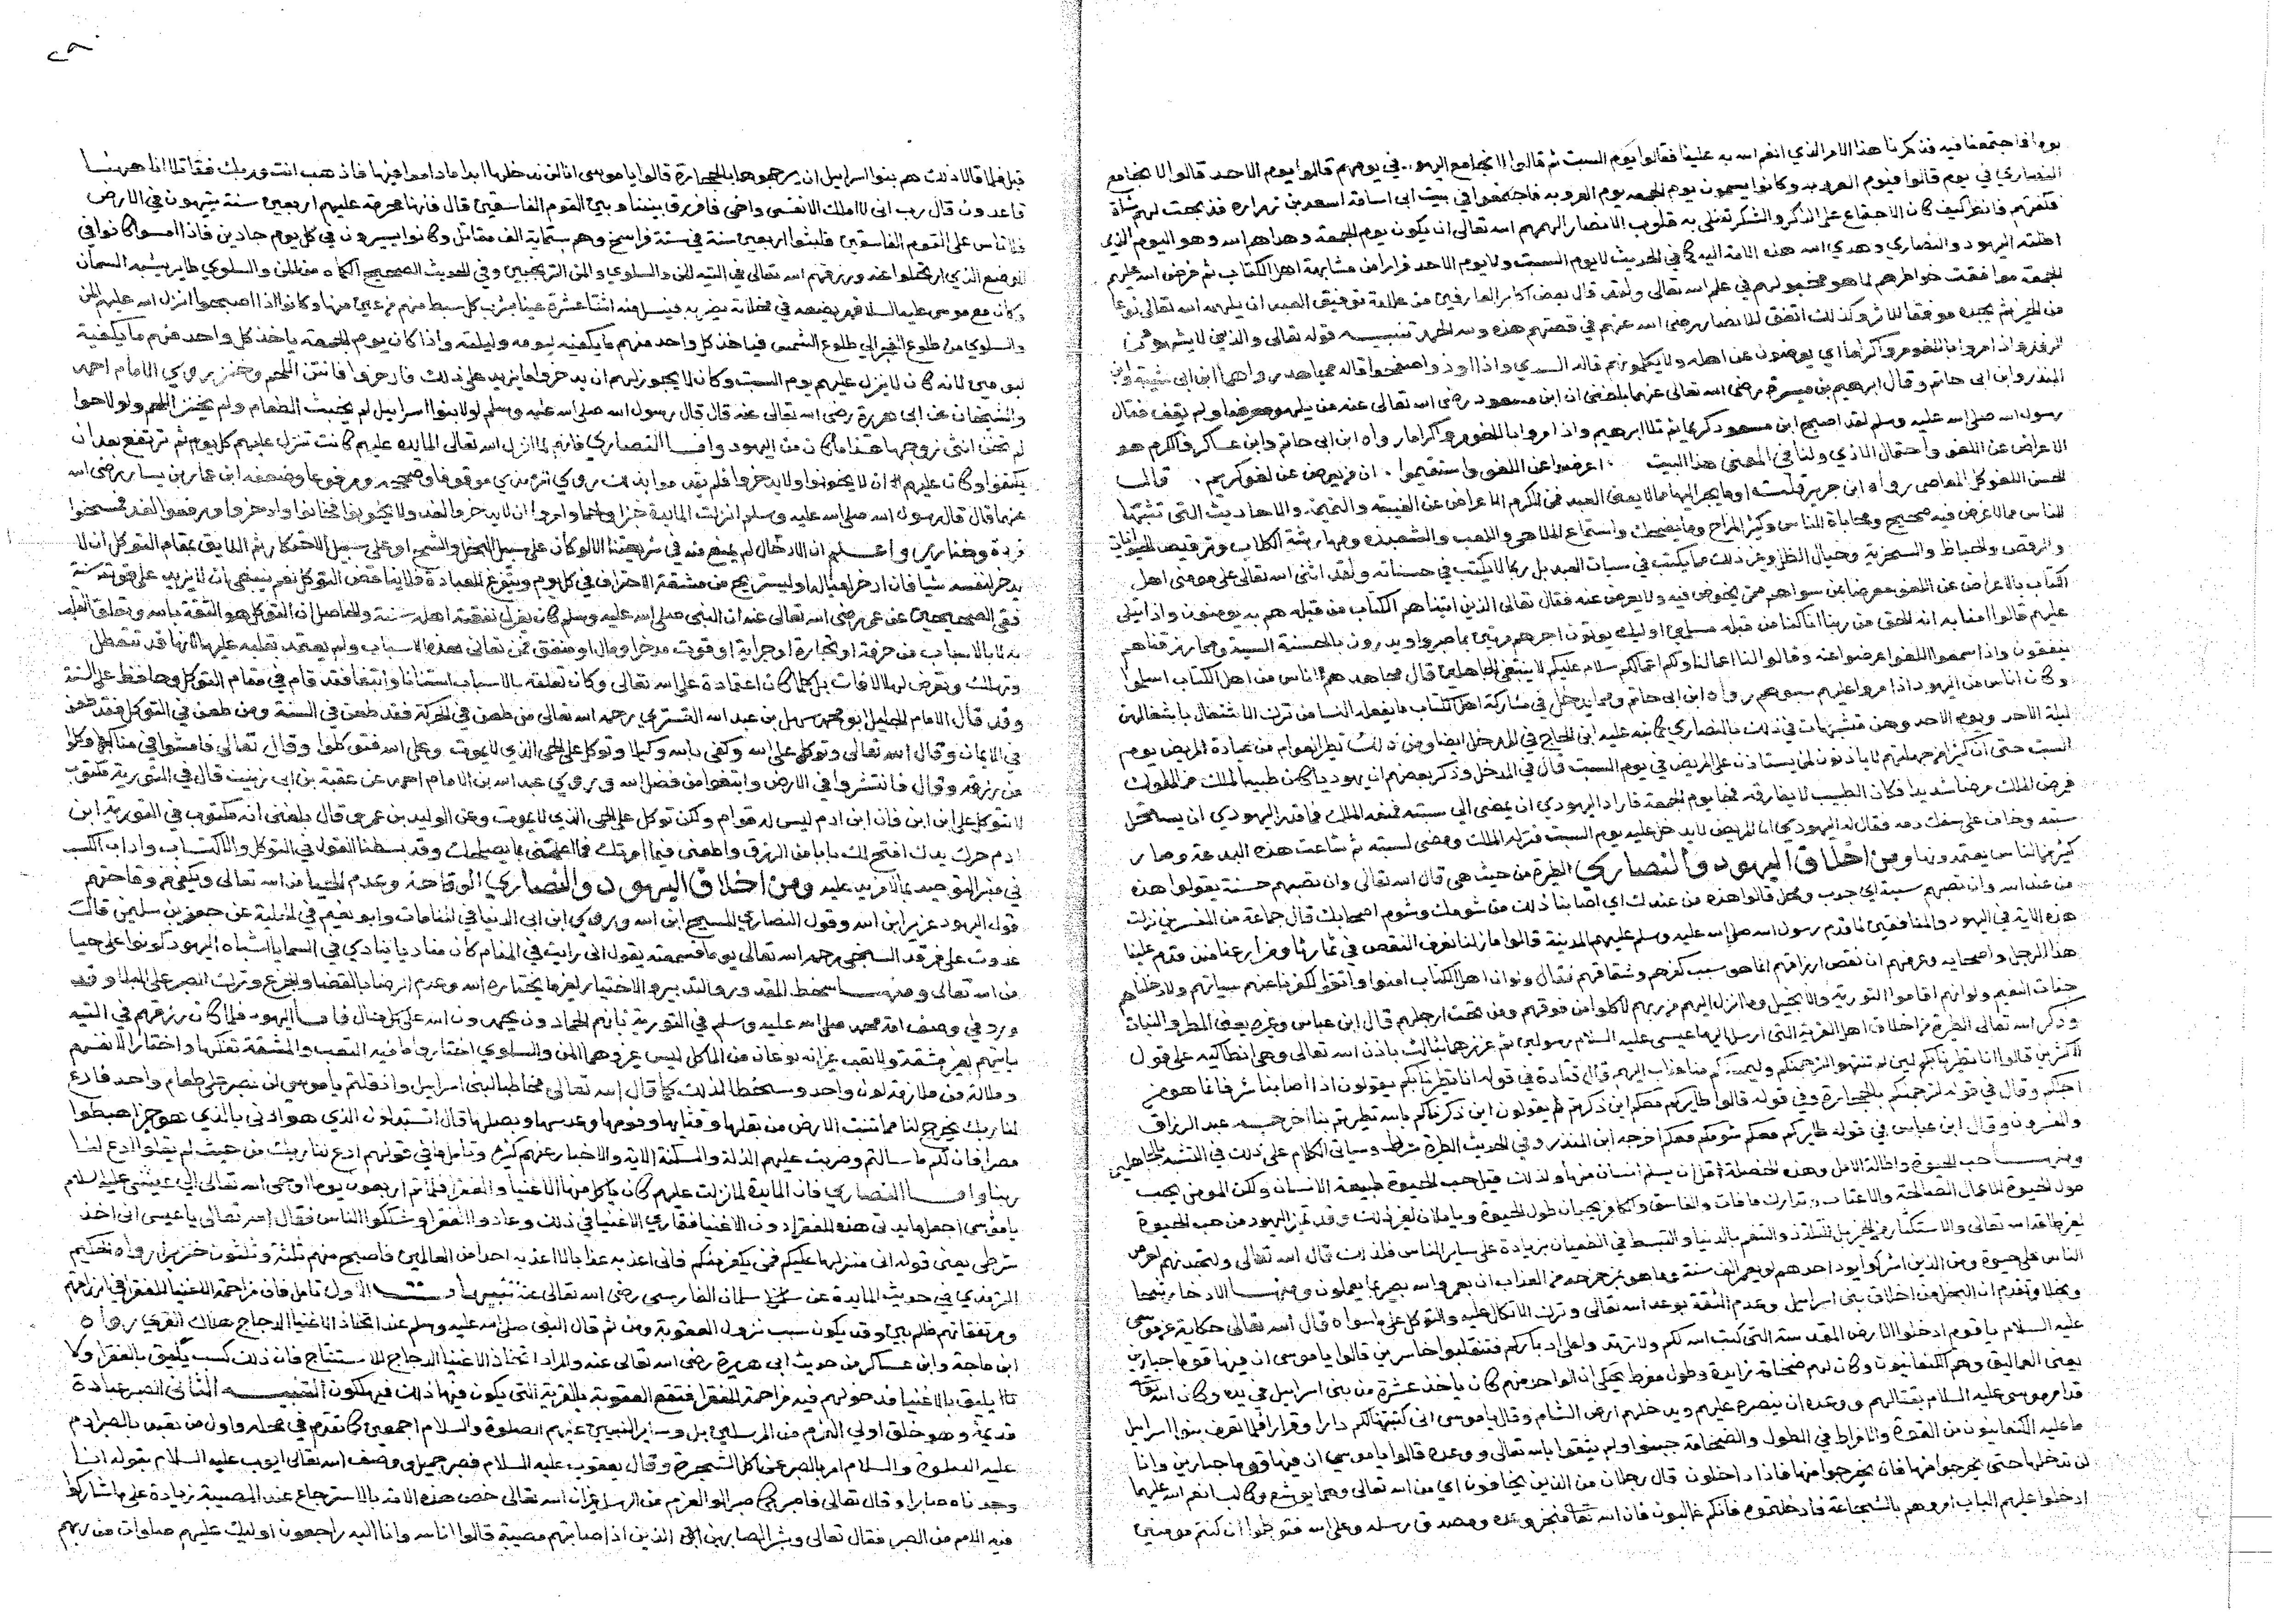 يوما فاجتمعنا فيه فذكرنا هذا الامر الذي انعم الله به علينا فقالوا يوم السبت ثم قالوا لا نجامع اليهود في يومهم قالوا يوم الاحد قالوا لا نجامع
النصاري في يوم قالوا فيوم العروبه وكانوا يسمون يوم الجمعه يوم العروبه فاجتمعوا في بيت ابي امامة اسعد بن زراره فذبحت لهم شاة
فكفتهم فانظر كيف كان الاجتماع على الذكر والشكر تغلي به قلوب الانصار الهمهم الله تعالى ان يكون يوم الجمعة وهداهم الله وهو اليوم الذي
اظلته اليهود والنصاري وهدي الله هذه الامة اليه كما في الحديث لا يوم السبت ولا يوم الاحد فرارا من مشابهة اهل الكتاب ثم فرض الله عليهم
الجمعة موافقت خواطرهم لما هو محبوب لهم في علم الله تعالى ولقد قال بعض اكابر العارفين من علامة توفيق العبد ان يلهمه الله تعالى نوعا
من الخير ثم يجده موفقا للاثر وكذلك اتفق للانصار رضي الله عنهم في قصتهم هذه ولله الحمد تنبيه قوله تعالى والذين لا يشهدون
الزور واذا مروا باللغو مروا كراما اي يعرضون عن اهله ولا يكلمونهم قاله السدي واذا اوذوا صفحوا قاله مجاهد رواهما ابن ابي شيبة وابن
المنذر وابن ابي حاتم وقال ابرهيم بن ميسرة رضي الله تعالى عنهما بلغني ان ابن مسعود رضي الله تعالى عنه مر بلهو معرضا ولم يقف فقال
رسول الله صلى الله عليه وسلم لقد اصبح ابن مسعود كريما ثم تلا ابرهيم واذا مروا باللغو مروا كراما رواه ابن ابي حاتم وابن عساكر فالكرم هو
الاعراض عن اللغو واحتمال الاذي ولنا في المعنى هذا البيت . اعرضوا عن اللغو واستقيموا . ان من يعرض عن لغو كريم . قال
الحسن اللغو كل المعاصي رواه ابن جرير قلت او ما يجر اليها مما لا يعني العبد فمن الكرم الاعراض عن الغيبة والنميمة والاحاديث التي تشتهيها
الناس مما لا غرض فيه صحيح ومحاباة الناس وكثرة المزاح وما يضحك واستماع الملاهي واللعب والشعبذه ومهارشة الكلاب وترقيص الحيوانات
والرقص والخباط والسخرية وخيال الظل وغير ذلك مما يكتب في سيات العبد بل ربما لا يكتب في حسناته ولقد اثنى الله تعالى على مومني اهل
الكتاب بالاعراض عن اللغو معرضا بمن سواهم ممن يخوض فيه ولا يعرض عنه فقال تعالى الذين اتيناهم الكتاب من قبله هم به يومنون واذا يتلى
عليهم قالوا امنا به انه الحق من ربنا انا كنا من قبله مسلمين اوليك يوتون اجرهم مرتين بما صبروا ويدرون بالحسنة السيئة ومما رزقناهم
ينفقون واذا سمعوا اللغو اعرضوا عنه وقالوا لنا اعمالنا ولكم اعمالكم سلام عليكم لا نبتغي الجاهلين قال مجاهد هم اناس من اهل الكتاب اسلموا
وكان اناس من اليهود اذا مروا عليهم سبوهم رواه ابن ابي حاتم ومما يدخل في مشاركة اهل الكتاب ما يفعله النسا من ترك الاشتغال باشغالهن
ليلة الاحد ويوم الاحد وهن متشبهات في ذلك بالنصاري كما نبه عليه ابن الحاج في المدخل ايضا ومن ذلك تطير العوام من عيادة المريض يوم
السبت حتى ان كثيرا من جهلتهم لا ياذنون لمن يستاذن على المريض في يوم السبت قال في المدخل وذكر بعضهم ان يهوديا كان طبيبا لملك من الملوك
فمرض الملك مرضا شديدا فكان الطبيب لا يفارقه فجا يوم الجمعة فاراد اليهودي ان يمضي الي سبته فمنعه الملك فما قدر اليهودي ان يستحل
سبته وخاف على سفك دمه فقال له اليهودي ان المريض لا يدخل عليه يوم السبت فتركه الملك ومضى لسبته ثم شاعت هذه البدعة وصار
كثير من الناس يعتمدونها ومن اخلاق اليهود والنصاري الطيرة من حيث هي قال الله تعالى وان تصبهم حسنة يقولوا هذه
من عند الله وان تصبهم سيئة اي جدب ومحل قالوا هذه من عندك اي اصابنا ذلك من شومك وشوم اصحابك قال جماعة من المفسرين نزلت
هذه الاية في اليهود والمنافقين لما قدم رسول الله صلى الله عليه وسلم عليهم المدينة قالوا ما زلنا نعرف النقص في ثمارنا ومزارعنا منذ قدم علينا
هذا الرجل واصحابه وعرفهم ان نقص ارزاقهم انما هو سبب كفرهم وشقاقهم فقال ولو ان اهل الكتاب امنوا واتقوا لكفرنا عنهم سيئاتهم ولادخلناهم
جنات النعيم ولو انهم اقاموا التورية والانجيل وما انزل اليهم من ربهم لاكلوا من فوقهم ومن تحت ارجلهم قال ابن عباس وغيره يعني المطر والنبات
وذكر الله تعالى الطيرة من اخلاق اهل القرية التي ارسل اليها عيسى عليه السلام رسولين ثم عززهما بثالث باذن الله تعالى وهي انطاكيه على قول
الاكثرين قالوا انا تطيرنا بكم لين لم تنتهوا لنرجمنكم وليمسنكم منا عذاب اليم قال قتادة في قوله انا تطيرنا بكم يقولون اذا اصابنا شر فانما هو من
اجلكم وقال في قوله لنرجمنكم بالحجارة وفي قوله قالوا طايركم معكم اين ذكرتم يقولون اين ذكرناكم بالله تطيرتم بنا اخرجه عبد الرزاق
والمفسرون وقال ابن عباس في قوله طايركم معكم شومكم معكم اخرجه ابن المنذر وفي الحديث الطيرة شرك وسياتي الكلام على ذلك في التشبه بالجاهلين
ومنها حب الحيوة واطالة الامل وهذه الخصلة قل ان يسلم انسان منها ولذلك قيل حب الحيوة طبيعة الانسان ولكن المومن يحب
طول الحيوة للاعمال الصالحة والاعتاب وتدارك ما فات والفاسق والكافر يحبان طول الحيوة وياملان لغير ذلك وقد تميز اليهود من حب الحيوة
لغير طاعة الله تعالى والاستكثار من الخير بل للتلذذ والتنعم بالدنيا والتبسط في العصيان بزيادة على ساير الناس فلذلك قال الله تعالى ولتجدنهم احرص
الناس على حيوة ومن الذين اشركوا يود احدهم لو يعمر الف سنة وما هو بمزحزحه من العذاب ان يعمر والله بصير بما يعملون ومنها الادخار شحا
وبخلا وتقدم ان البخل من اخلاق بني اسرائيل وعدم الثقة بوعد الله تعالى وترك الاتكال عليه والتوكل على ما سواه قال الله تعالى حكاية عن موسى
عليه السلام يا قوم ادخلوا الارض المقدسة التي كتب الله لكم ولا ترتدوا على ادباركم فتنقلبوا خاسرين قالوا يا موسى ان فيها قوما جبارين
يعني العماليق وهم الكنعانيون وكان لهم ضخامة زايدة وطول مفرط يحكى ان الواحد منهم كان ياخذ عشرة من بني اسرائيل في يده وكان الله تعالى
قد امر موسى عليه السلام بقتالهم ووعده ان ينصره عليهم ويدخلهم ارض الشام وقال يا موسى اني كتبتها لكم دارا وقرارا فلما تعرف بنوا اسرائيل
ما عليه الكنعانيون من القوة والافراط في الطول والضخامة جبنوا ولم يثقوا بالله تعالى ووعده قالوا يا موسى ان فيها قوما جبارين وانا
لن ندخلها حتى يخرجوا منها فان يخرجوا منها فانا داخلون قال رجلان من الذين يخافون اي من الله تعالى وهما يوشع وكالب انعم الله عليهما
ادخلوا عليهم الباب امروهم بالشجاعة فاذا دخلتموه فانكم غالبون فان الله تعالى منجز وعده ومصدق رسله وعلى الله فتوكلوا ان كنتم مومنين
٢٨٠
قبل فلما قالا ذلك هم بنوا اسرائيل ان يرجموهما بالحجارة قالوا يا موسى انا لن ندخلها ابدا ما داموا فيها فاذهب انت وربك فقاتلا انا ههنا
قاعدون قال رب اني لا املك الا نفسي واخي فافرق بيننا وبين القوم الفاسقين قال فانها محرمة عليهم اربعين سنة يتيهون في الارض
فلا تاس على القوم الفاسقين فلبثوا اربعين سنة في ستة فراسخ وهم ستماية الف مقاتل وكانوا يسيرون في كل يوم جادين فاذا امسوا كانوا في
الموضع الذي ارتحلوا عنه ورزقهم الله تعالى في التيه المن والسلوي والمن الترنجبين وفي الحديث الصحيح الكماة من المن والسلوي طاير يشبه السمان
وكان مع موسى عليه السلام حجر يضعه في مخلاته يضربه فيسيل منه اثنتا عشرة عينا يشرب كل سبط منهم من عين منها وكانوا اذا اصبحوا انزل الله عليهم المن
والسلوي من طلوع الفجر الي طلوع الشمس فياخذ كل واحد منهم ما يكفيه ليومه وليلته واذا كان يوم الجمعه ياخذ كل واحد منهم ما يكفيه
ليومين لانه كان لا ينزل عليهم يوم السبت وكان لا يجوز لهم ان يدخروا ما يزيد على ذلك فادخروا فانتن اللحم وخنز بروي الامام احمد
والشيخان عن ابي هريرة رضي الله تعالى عنه قال قال رسول الله صلى الله عليه وسلم لولا بنوا اسرائيل لم يخبث الطعام ولم يخنز اللحم ولولا حوا
لم تخن انثى زوجها هذا ما كان من اليهود واما النصاري فانهم لما انزل الله تعالى المايده عليهم كانت تنزل عليهم كل يوم ثم ترتفع بعد ان
يكتفوا وكان عليهم ان لا يخونوا ولا يدخروا فلم يفوا بذلك روي الترمذي موقوفا وصححه ومرفوعا وضعفه ابن عمار بن ياسر رضي الله
عنهما قال قال رسول الله صلى الله عليه وسلم انزلت المايدة خبزا ولحما وامروا ان لا يدخروا لغد ولا يخونوا فخانوا وادخروا ورفعوا لغد فمسخوا
قردة وخنازير واعلم ان الادخار لم يمنع منه في شريعتنا الا لو كان على سبيل البخل والشح او على سبيل الاحتكار ثم اللايق بمقام التوكل ان لا
يدخر لنفسه شيا فان ادخر لعياله او ليستريح من مشقة الاحتراف في كل يوم ويتفرغ للعبادة فلا يناقض التوكل نعم ينبغي ان لا يزيد على قوت سنة
ففي الصحيحين عن عمر رضي الله تعالى عنه ان النبي صلى الله عليه وسلم كان يعزل نفقة اهله سنة والحاصل ان التوكل هو الثقة بالله وتعلق القلب
به لا بالاسباب من حرفة او تجارة او جراية او قوت مدخر او مال او منفق فمن تعاني هذه الاسباب ولم يعتمد تعلبه عليها لانها قد تتعطل
وتهلك وتعرض لها الافات بل كلما كان اعتماده على الله تعالى وكان تعلقه بالاسباب استنانا واتباعا فقد قام في مقام التوكل وحافظ على السنة
وقد قال الامام الجليل ابو محمد سهل بن عبد الله التستري رحمه الله تعالى من طعن في الحركة فقد طعن في السنة ومن طعن في التوكل فقد طعن
في الايمان وقال الله تعالى وتوكل على الله وكفى بالله وكيلا وتوكل على الحي الذي لا يموت وعلى الله فتوكلوا وقال تعالى فامشوا في مناكبها وكلوا
من رزقه وقال فانتشروا في الارض وابتغوا من فضل الله وبروي عبد الله بن الامام احمد عن عقبة بن ابي زينب قال في التورية مكتوب
لا تتوكل على ابن ابن فان ابن ادم ليس له قوام ولكن توكل على الحي الذي لا يموت وعن الوليد بن عمر قال بلغني انه مكتوب في التورية ابن
ادم حرك يدك افتح لك بابا من الرزق واطعني فيما امرتك فما اعلمني بما يصلحك وقد بسطنا القول في التوكل والاكتساب واداب الكسب
في منبر التوحيد بما لا مزيد عليه ومن اخلاق اليهود والنصاري الوقاحة وعدم الحيا من الله تعالى ويكفي من وقاحتهم
قول اليهود عزير ابن الله وقول النصاري المسيح ابن الله وبروي ابن ابي الدنيا في المنامات وابو نعيم في الحلية عن جعفر بن سليمن قال
غدوت على فرقد السبخي رحمه الله تعالى يوما فسمعته يقول اني رايت في المنام كان مناديا ينادي في السما يا اشباه اليهود كونوا على حيا
من الله تعالى ومنها سخط المقدور والتدبير والاختيار لغير ما يختاره الله وعدم الرضا بالقضا والجزع وترك الصبر على البلا وقد
ورد في وصف امة محمد صلى الله عليه وسلم في التورية بانهم الحمادون يحمدون الله على كل حال فاما اليهود فلما كان رزقهم في التيه
ياتيهم بغير مشقة ولا تعب غير انه نوعان من الماكل ليس غيرهما المن والسلوي اختاروا ما فيه التعب والمشقة تفكها واختيارا لانفسهم
وملالة من ملازمة لون واحد وسخطا لذلك كما قال الله تعالى مخاطبا لبني اسرايل واذ قلتم يا موسى لن نصبر على طعام واحد فادع
لنا ربك يخرج لنا مما تنبت الارض من بقلها وقثايها وفومها وعدسها وبصلها قال اتستبدلون الذي هو ادنى بالذي هو خير اهبطوا
مصرا فان لكم ما سالتم وضربت عليهم الذلة والمسكنة الاية والاخبار عنهم كثيرة وتامل ما في قولهم ادع لنا ربك من حيث لم يقولوا ادع لنا
ربنا واما النصاري فان المايدة لما نزلت عليهم كان ياكل منها الاغنيا والفقرا فلما تم اربعون يوما اوحى الله تعالى الي عيسى عليه السلام
يا موسى اجعل مايدتي هذه للفقرا دون الاغنيا فتماري الاغنيا في ذلك وعادوا الفقرا وشككوا الناس فقال الله تعالى يا عيسى اني اخذ
شرطي يعني قوله اني منزلها عليكم فمن يكفر منكم فاني اعذبه عذابا لا اعذبه احدا من العالمين فاصبح منهم ثلثة وثلثون خنزيرا رواه الحكيم
الترمذي في حديث المايدة عن سلمان الفارسي رضي الله تعالى عنه تنبيهان الاول تامل فان مزاحمة الاغنيا للفقرا في ارزاقهم
ومرتفقاتهم ظلم بين وقد يكون سبب نزول العقوبة ومن ثم قال النبي صلى الله عليه وسلم عند اتخاذ الاغنيا الدجاج هلاك القري رواه
ابن ماجة وابن عساكر من حديث ابي هريرة رضي الله تعالى عنه والمراد اتخاذ الاغنيا الدجاج للاستنتاج فان ذلك كسب يليق بالفقرا ولا
يليق بالاغنيا فدخولهم فيه مزاحمة للفقرا فتقع العقوبة بالقرية التي يكون فيها ذلك فيهلكون التنبيه الثاني الصبر عبادة
قديمة وهو خلق اولي العزم من المرسلين بل وساير النبيين عليهم الصلوة والسلام اجمعين كما تقدم في محله واول من تعبد بالصبر ادم
عليه الصلوة والسلام امر بالصبر عن اكل الشجرة وقال يعقوب عليه السلام فصبر جميل ووصف الله تعالى ايوب عليه السلام بقوله انا
وجدناه صابرا وقال تعالى فاصبر كما صبر اولو العزم من الرسل غير ان الله تعالى خص هذه الامة بالاسترجاع عند المصيبة زيادة على ما شاركوا
فيه الامم من الصبر فقال تعالى وبشر الصابرين الذين اذا اصابتهم مصيبة قالوا انا لله وانا اليه راجعون اوليك عليهم صلوات من ربهم